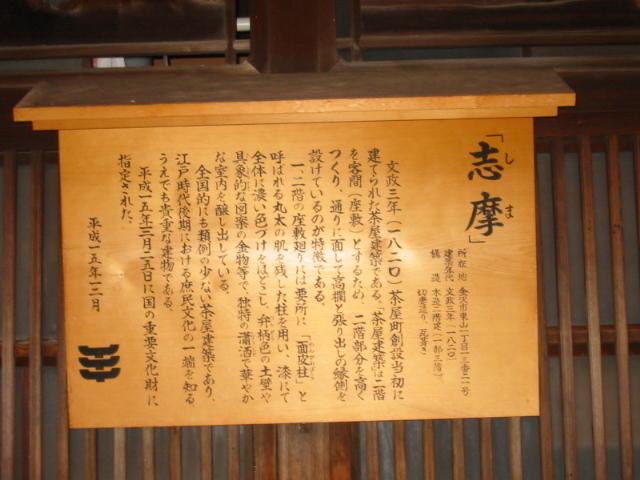 「志摩」
しま
所在地 金沢市東山一丁目一三番二一号
建築年代 文政三年(一八二〇)
構造 木造二階建(一部三階)
切妻造り 瓦葺き
文政三年(一八二〇)茶屋町創設当初に
建てられた茶屋建築である。「茶屋建築」は二階
を客間(座敷)とするため、二階部分を高く
つくり、通りに面して高欄と張り出しの縁側を
設けているのが特徴である。
一、二階の座敷廻りには要所に「面皮柱」と
めんかわばしら
呼ばれる丸太の肌を残した柱を用い、漆にて
全体に濃い色づけをほどこし、弁柄色の土壁や
具象的な図案の金物等で、独特の瀟洒で華やか
な室内を醸し出している。
全国的にも類例の少ない茶屋建築であり、
江戸時代後期における庶民文化の一端を知る
うえでも貴重な建物である。
平成一五年二月二五日に国の重要文化財に
指定された。
平成一五年一二月